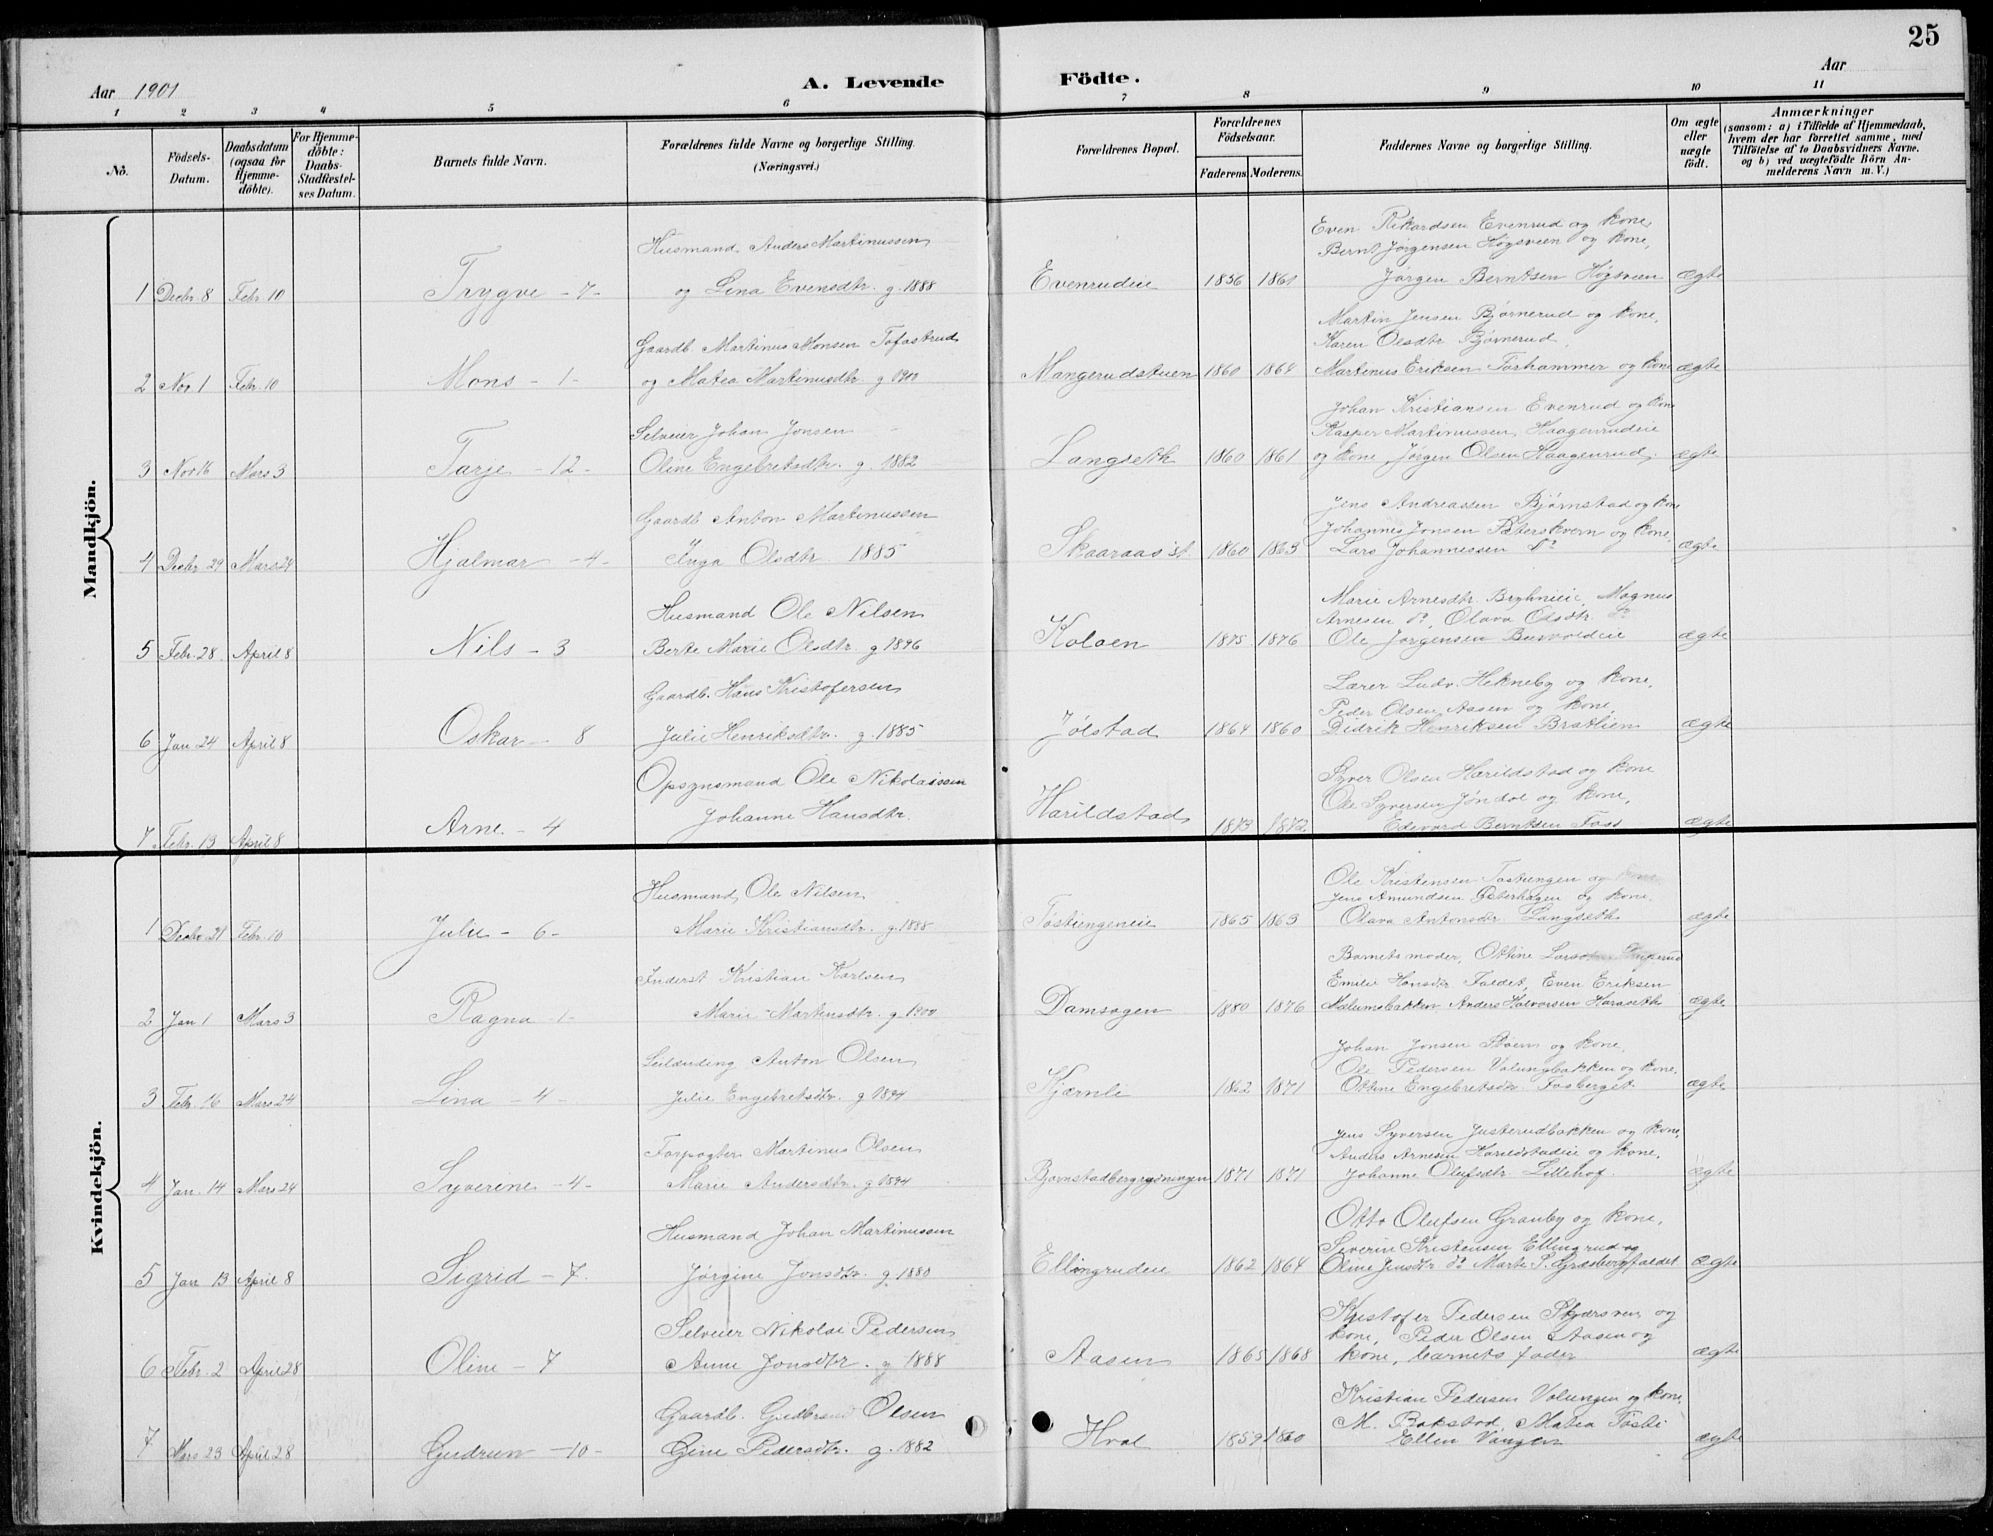 25
Aar 1901
A. Levende Födte.
Aar
1 2 3 4 5 6 7 8 9 10 11
No.
Födsels-Datum.
Daabsdatum (ogsaa for Hjemme-döbte).
For Hjemme-döbte: Daabs-Stadfæstel-ses Datum.
Barnets fulde Navn.
Forældrenes fulde Navne og borgerlige Stilling.
(Næringsvei.)
Forældrenes Bopæl.
Forældrenes Födselsaar.
Faderens. Moderens.
Faddernes Navne og borgerlige Stilling.
Om ægte eller uægte födt.
Anmærkninger
(saasom: a) i Tilfælde af Hjemmedaab,
hvem der har forrettet samme, med
Tilföielse af to Daabsvidners Navne.
og b) ved uægtefödte Börn An-
melderens Navn m. V.)
Mandkjön.
Husmand Anders Martinussen
Even Rikardsen Evenrud og kone
Bernt Jørgensen Høgsveen og kone,
1 Decbr. 8 Febr. 10 Trygve - 7 - og Lina Evensdtr. g. 1888 Evenrudeie 1856 1861 Jørgen Berntsen Høgsveen ægte
Gaardb. Martinus Monsen Tofastrud
Martin Jensen Bjørnerud og kone,
Karen Olsdtr Bjørnerud,
2 Nov 1 Febr. 10 Mons - 1 - og Matea Martinusdtr. g 1900 Mangerudstuen 1860 1864 Martinus Eriksen Torhammer og kone ægte
Selveier Johan Jonsen
Johan Kristiansen Evenrud og kone
Kasper Martinussen Haagenrudeie
3 Nov 16 Mars 3 Tarje - 12 - Oline Engebretsdtr. g. 1882 Langseth 1860 1861 og kone, Jørgen Olsen Haagenrud. ægte
Gaardb Anton Martinussen
Jens Andreassen Bjørnstad og kone
Johannes Jonsen Pøterskvern og kone,
4 Decbr. 29 Mars 24 Hjalmar - 4 - Inga Olsdtr. 1885 Skaaraas st. 1860 1863 Lars Johannessen do ægte
Husmand Ole Nilsen
Marie Arnesdtr. Bryhnieie, Magnus
Arnesen do, Olava Olsdtr. do
5 Febr. 28 April 8 Nils - 3 Berte Marie Olsdtr. g 1896 Koloen 1875 1876 Ole Jørgensen ægte
Gaardb. Hans Kristofersen
Lærer Ludv. Hekneby og kone,
Peder Olsen Aasen og kone,
6 Jan 24 April 8 Oskar - 8 Julie Henriksdtr. g. 1885 Jølstad 1864 1860 Didrik Henriksen Bratlien ægte
Opsynsmand Ole Nikolaissen
Syver Olsen Harildstad og kone
Ole Syversen Jøndal og kone,
7 Febr. 13 April 8 Arne - 4 Johanne Hansdtr. Harildstad 1873 1872 Edvard Berntsen Foss ægte
Kvindekjön.
Husmand Ole Nilsen
Ole Kristensen Tostungen og kone
Jens Amundsen Pøterhagen og kone.
1 Decbr. 21 Febr. 10 Julie - 6 - Marie Kristiansdtr. g. 1888 Tostungeneie 1865 1863 Olava Antonsdtr. Langseth ægte
Inderst Kristian Karlsen
Barnets moder, Ottine
Emilie Hansdtr Faldet, Even Eriksen
2 Jan 1 Mars 3 Ragna - 1 - Marie Martinsdtr. g. 1900 Damsagen 1880 1876 Mælumsbakken Anders Halvorsen Haraseth ægte
Leilænding Anton Olsen
Johan Jonsen Støen og kone,
Ole Pedersen Volungbakken og kone
3 Febr. 16 Mars 24 Lina - 4 - Julie Engebretsdtr. g 1894 Kjærnli 1862 1871 Ottine Engebretsdtr Fosberget ægte
Forpagter Martinus Olsen
Jens Syversen Justerudbakken og kone,
Anders Arnesen Harildstadeie og kone,
4 Jan. 14 Mars 24 Syverine - 4 - Marie Andersdtr. g 1894 Bjørnstadbergrydningen 1871 1871 Johanne Olufsdtr. Lillehof. ægte
Husmand Johan Martinussen
Otto Olufsen Granby og kone,
Severin Kristensen Ellingrud og
5 Jan 13 April 8 Sigrid - 7. Jørgine Jonsdtr. g. 1880 Ellingrudeie 1862 1864 Oline Jensdtr do Marte S. Græsbergfaldet ægte
Selveier Nikolai Pedersen
Kristofer Pedersen Skjærsven og
kone, Peder Olsen Aasen og
6 Febr. 2 April 28 Oline - 7 Anne Jonsdtr. g. 1888 Aasen 1865 1868 kone, barnets fader ægte
Gaardb. Gudbrand Olsen
Kristian Pedersen Volungen og kone,
M. Bakstad, Matea Tøsti
7 Mars 23 April 28 Gudrun - 10 - Gine Pedersdtr. g. 1882 Hval 1859 1860 Ellen Vangen ægte